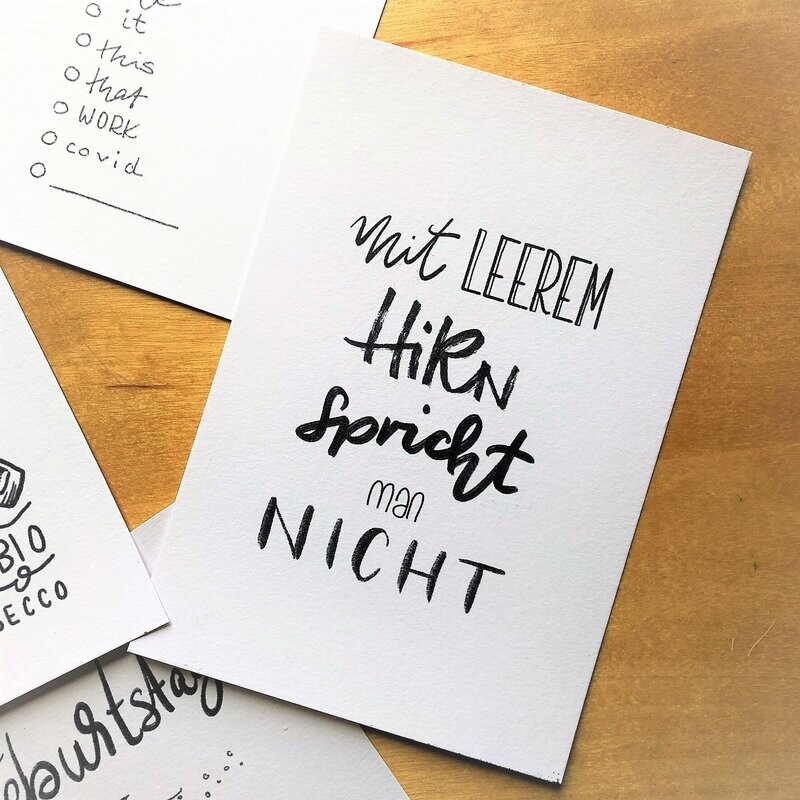 it
this
that
WORK
covid
Mit LEEREM
HiRN
spricht
man
NICHT
BIO